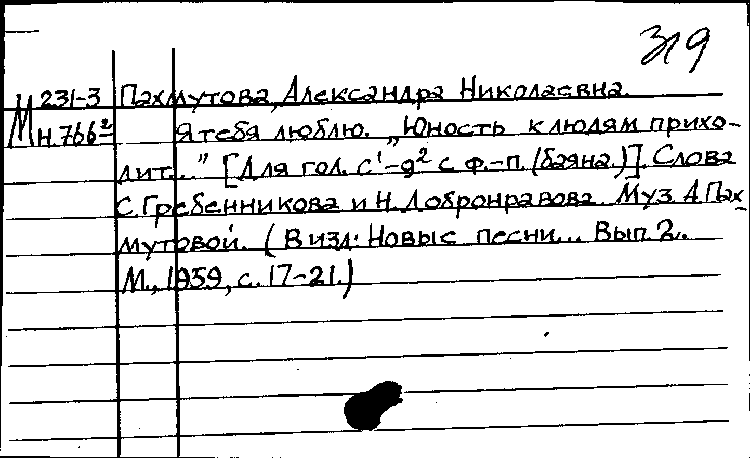 319
М 231-3 Пахмутова, Александра Николаевна.
Н.766² Я тебя люблю. „Юность к людям прихо-
дит..." [Для гол. c¹-g² с ф.-п. (баяна)]. Слова
С. Гребенникова и Н. Добронравова. Муз. А. Пах-
мутовой. (В изд: Новые песни... Вып. 2.
М., 1959, с. 17-21.)